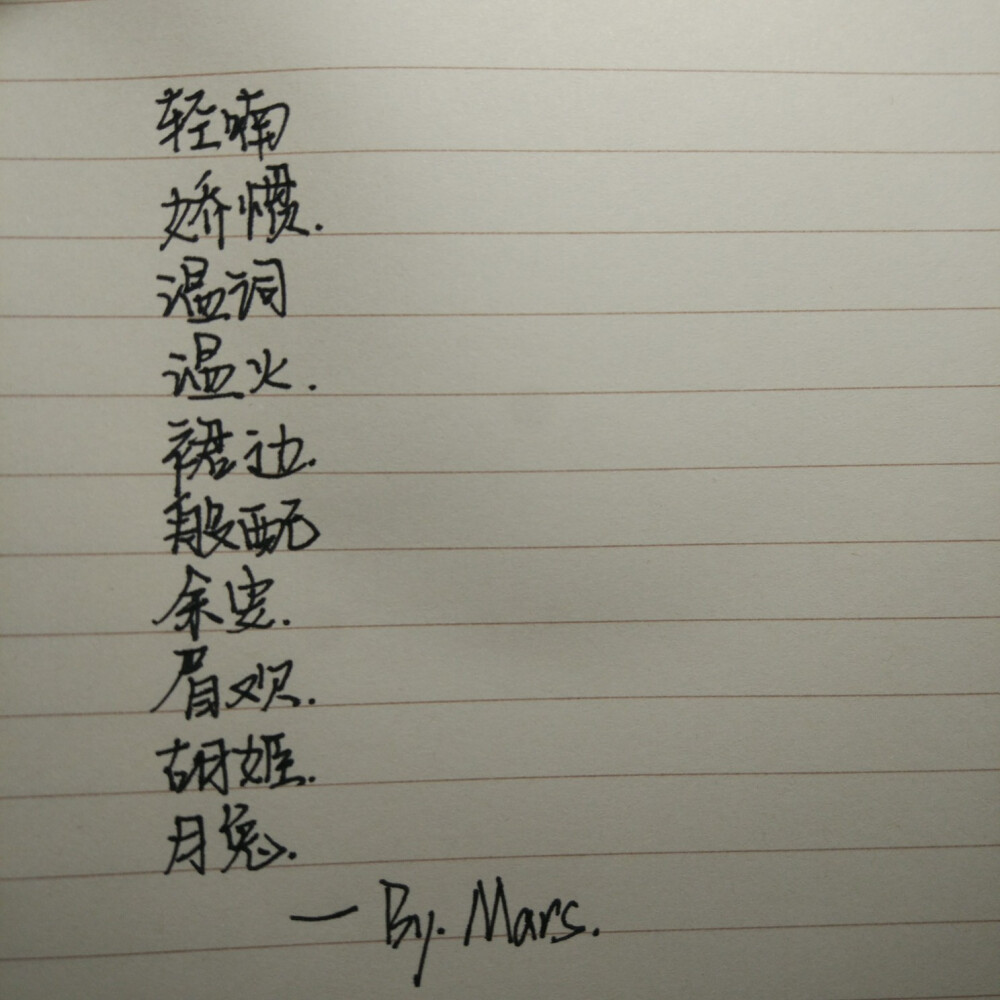 轻喃
娇惯.
温词
温火.
裙边.
般配
余雯.
眉欢.
胡姬.
月兔.
— By. Mars.